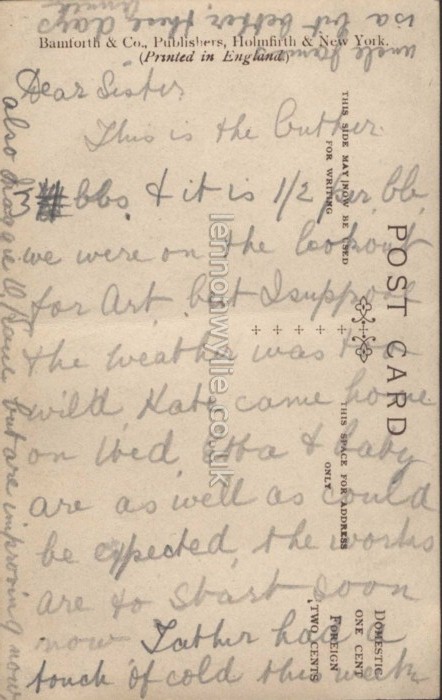 Bamforth & Co., Publishers, Holmfirth & New York.
(Printed in England)
Dear Sister
This is the butter
3 lbs & it is 1/2 per lb
we were on the lookout
for Art but I suppose
the weather was too
wild, Kate came home
on Wed, & baby
are as well as could
be expected, the works
are to start soon
now Father had a
touch of cold this week
also Maggie O. but are improving now
uncle
is a bit better these days
POST CARD
THIS SIDE MAY NOW BE USED
FOR WRITING
THIS SPACE FOR ADDRESS
ONLY
DOMESTIC
ONE CENT
FOREIGN
TWO CENTS
lennonwylie.co.uk